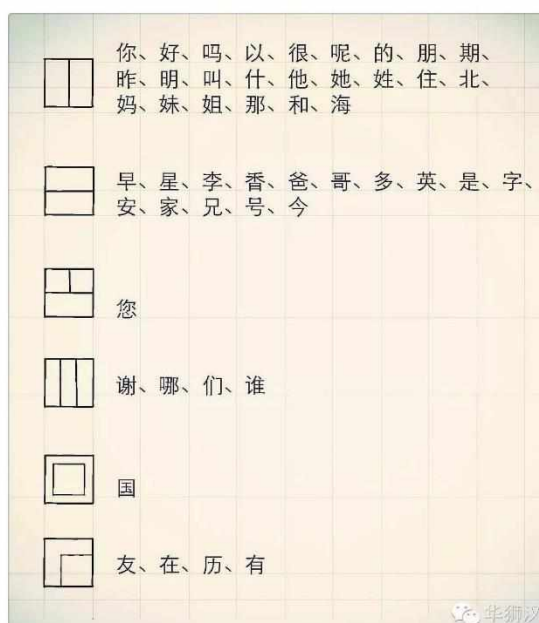 你、好、吗、以、很、呢、的、朋、期、
昨、明、叫、什、他、她、姓、住、北、
妈、妹、姐、那、和、海
早、星、李、香、爸、哥、多、英、是、字、
安、家、兄、号、今
您
谢、哪、们、谁
国
友、在、历、有
华狮汉